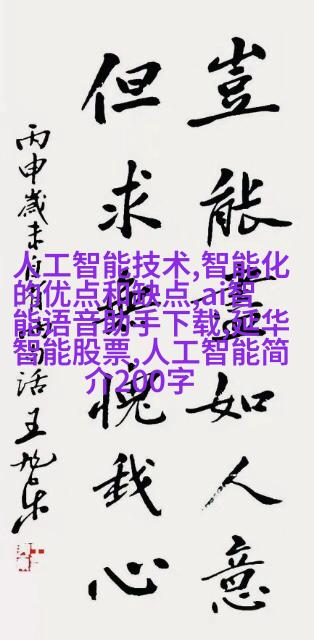 豈能盡如人意
但求無愧我心
丙申歲末
王旭东
人工智能技术,智能化
的优点和缺点,ai智
能语音助手下载,延华
智能股票,人工智能简
介200字